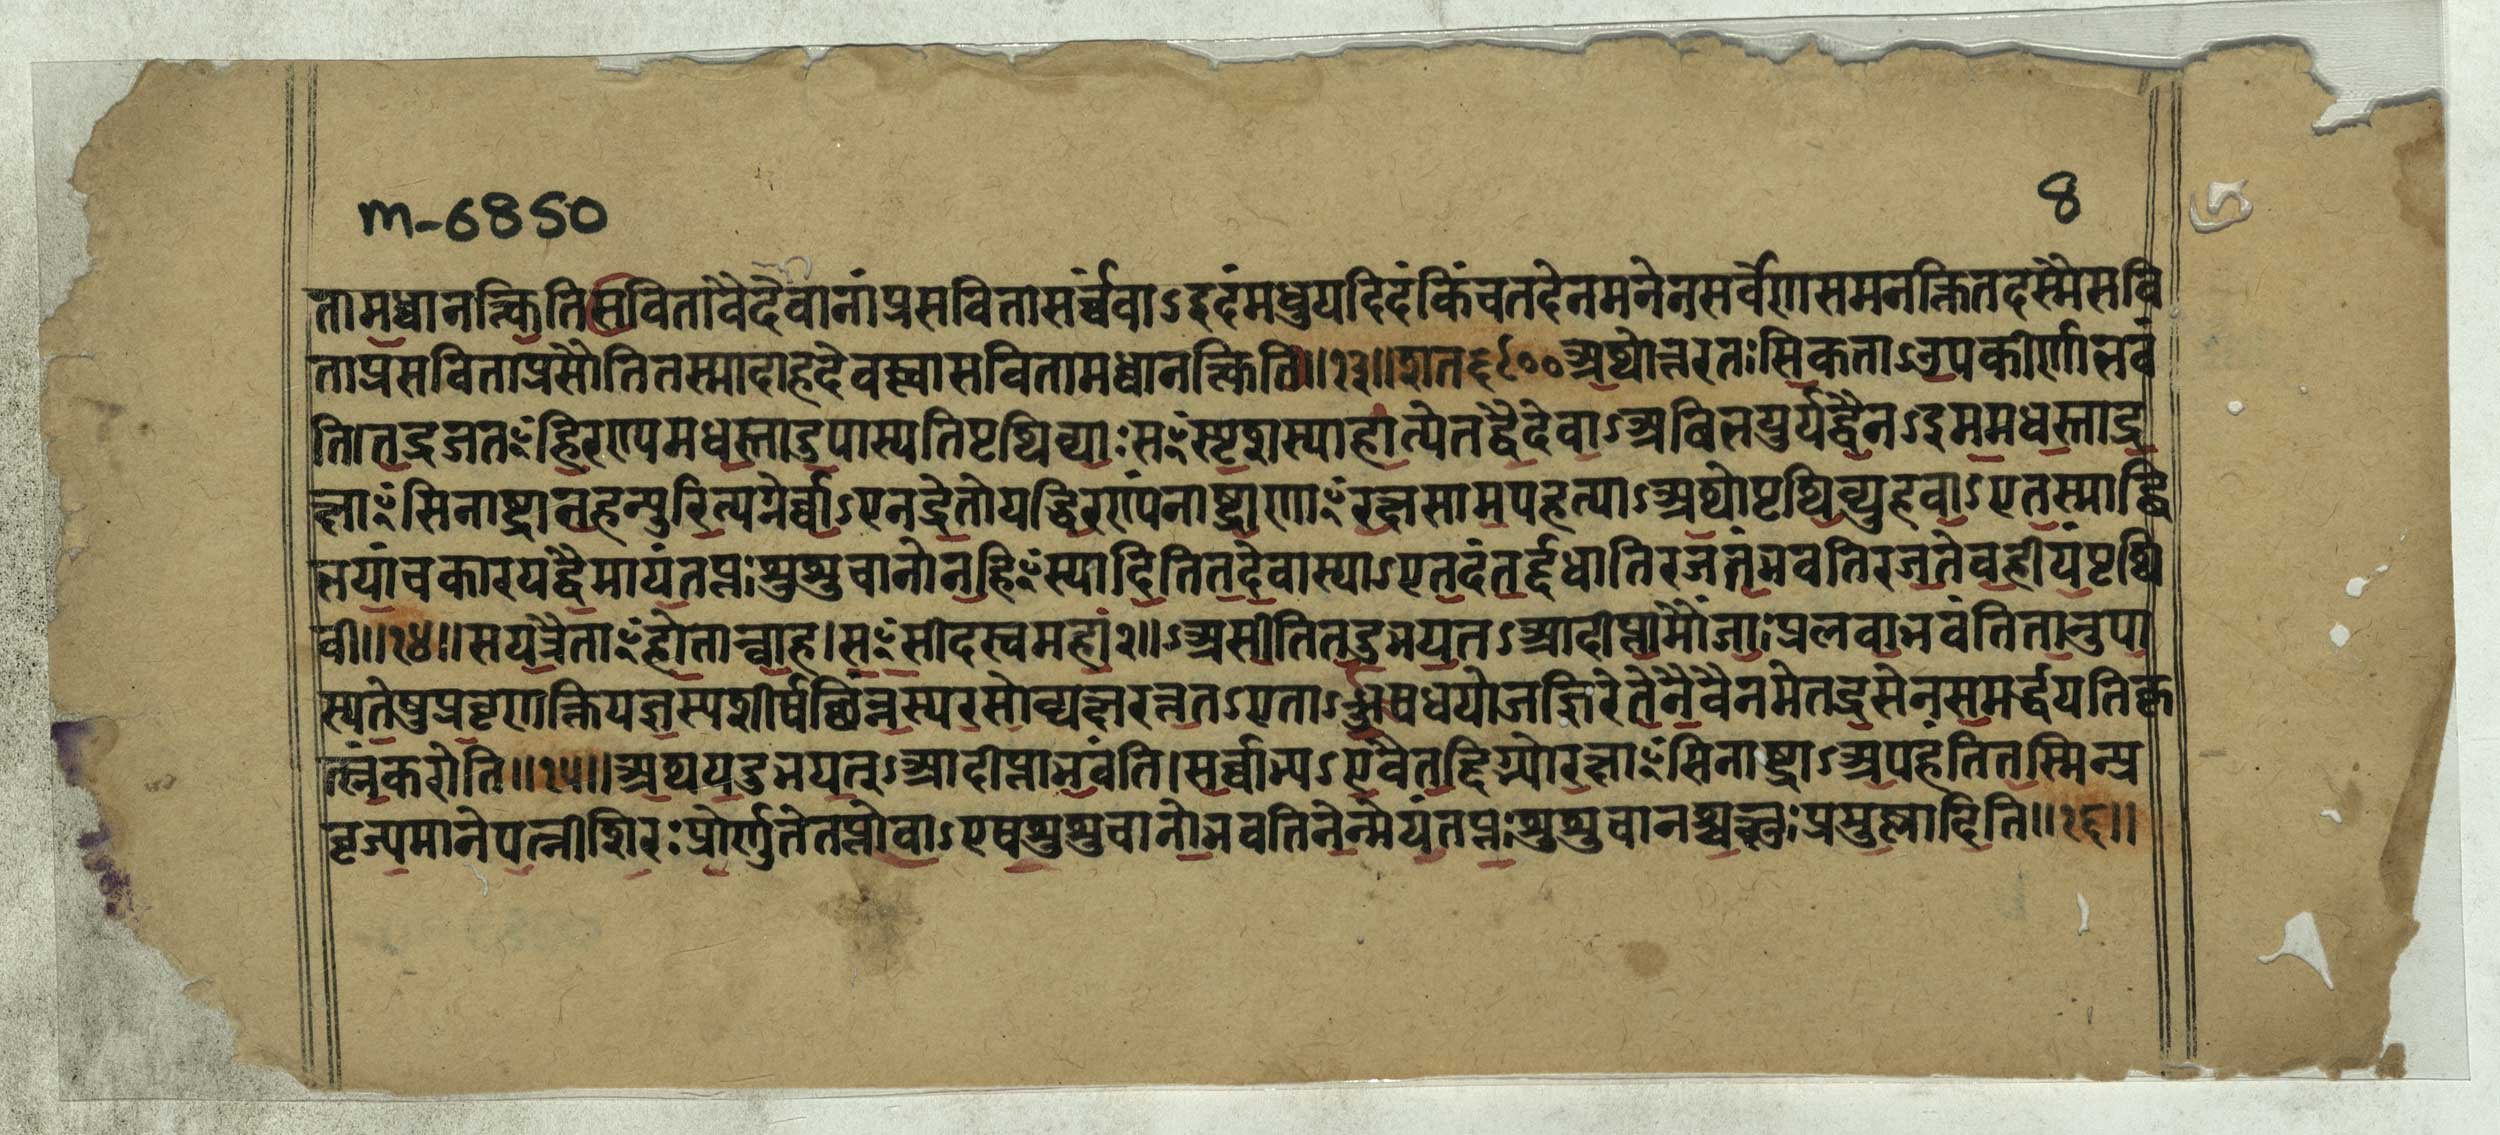 m-6850
8
तामध्वानक्त्वितिसवितावैदेवानांप्रसवितासर्व्वंवाऽइदंमधुयदिदंकिंचतदेनमनेनसर्वेणसमनक्तितदस्मैसवि
ताप्रसविताप्रसौतितस्मादाहदेवस्त्वासवितामध्वानक्त्विति॥१३॥शत६८००अथोत्तरतःसिकताऽउपकीर्णाभवं
ति।तद्रजतꣳहिरण्यमधस्तादुपास्यतिपृथिव्याःसꣳस्पृशस्पाहीत्येतद्वैदेवाऽअबिभयुर्यद्वैनऽइममधस्ताद्र
क्षाꣳसिनाष्ट्रानहन्युरित्यग्नेर्व्वाऽएतद्रेतोयद्धिरण्यंनाष्ट्राणाꣳरक्षसामपहत्याऽअथोपृथिव्युहवाऽएतस्माद्बि
भयांचकारयद्वैमायंतप्तःशुशुचानोनहिꣳस्यादितितदेवास्याऽएतदंतर्द्दधातिरजतंभवतिरजतेवहीयंपृथि
वी॥१४॥सयत्रैताꣳहोतान्वाह।सꣳसीदस्वमहां२॥ऽअसीतितदुभयतऽआदीप्तामौंजाःप्रलवाभवंतितानुपा
स्यतेषुप्रवृणक्तियज्ञस्यशीर्षच्छिन्नस्यरसोव्यक्षरत्ततऽएताऽओषधयोजज्ञिरेतेनैवैनमेतद्रसेनसमर्द्धयतिकृ
त्स्नंकरोति॥१५॥अथयदुभयतऽआदीप्ताभवंति।सर्व्वाभ्यऽएवैतद्दिग्भ्योरक्षाꣳसिनाष्ट्राऽअपहंतितस्मिन्प्र
वृज्यमानेपत्नीशिरःप्रोर्णुतेतप्तोवाऽएषशुशुचानोभवतिनेन्मेयंतप्तःशुशुचानश्चक्षुःप्रमुष्णादिति॥१६॥